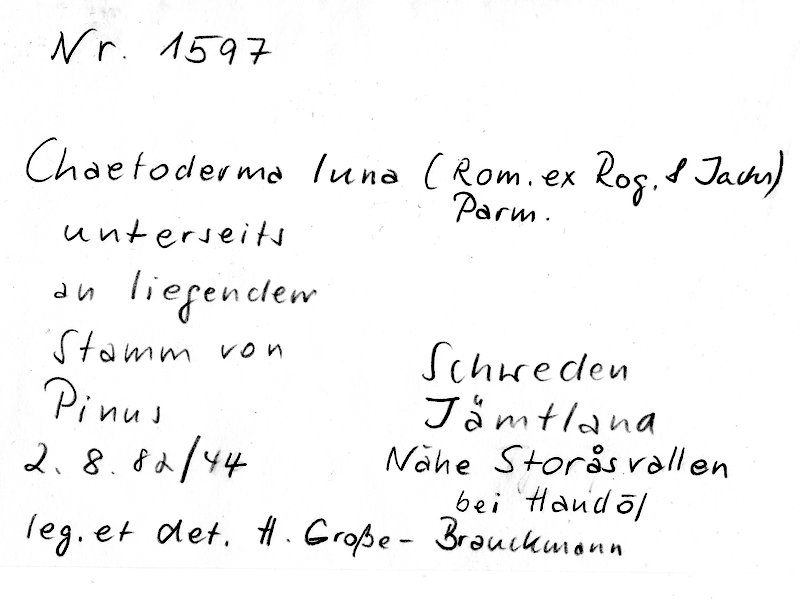 Nr. 1597
Chaetoderma luna (Rom. ex Rog. & Jacks)
Parm.
unterseits
an liegendem
Stamm von
Pinus
2. 8. 82/44
Schweden
Jämtland
Nähe Storåsvallen
bei Handöl
leg. et det. H. Große-Brauckmann